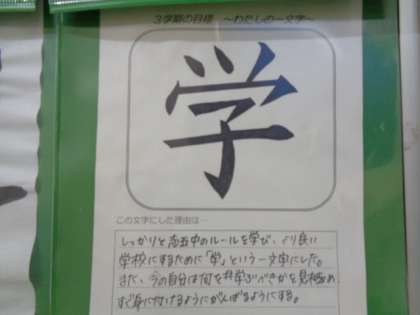 3学期の目標 ～わたしの一文字～
学
この文字にした理由は…
しっかりと志五中のルールを学び、より良い
学校にするために「学」という一文字にした。
また、今の自分は何を学ぶべきかを見極め
すぐ身に付けるようにがんばるようにする。